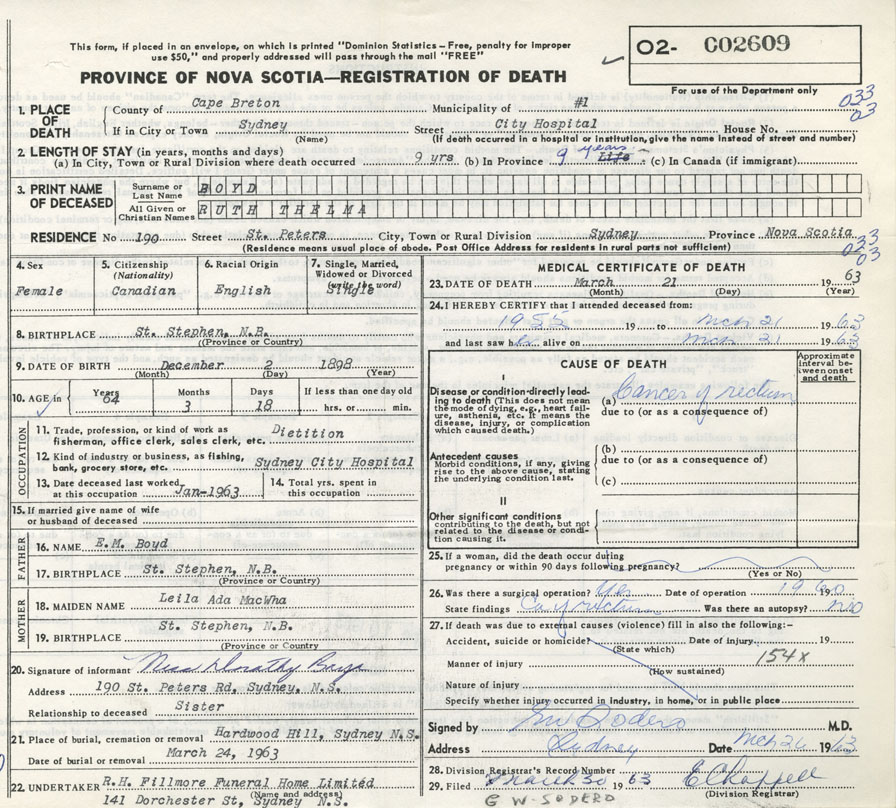 This form, if placed in an envelope, on which is printed "Dominion Statistics – Free, penalty for improper
use $50," and properly addressed will pass through the mail "FREE"
O2- C02609
PROVINCE OF NOVA SCOTIA—REGISTRATION OF DEATH
For use of the Department only
033
03
1. PLACE OF DEATH
County of Cape Breton Municipality of #1
If in City or Town Sydney Street City Hospital House No.
(Name) (If death occurred in a hospital or institution, give the name instead of street and number)
2. LENGTH OF STAY (in years, months and days)
(a) In City, Town or Rural Division where death occurred 9 yrs (b) In Province 9 years Life (c) In Canada (if immigrant)
3. PRINT NAME OF DECEASED
Surname or Last Name BOYD
All Given or Christian Names RUTH THELMA
RESIDENCE No 190 Street St. Peters City, Town or Rural Division Sydney Province Nova Scotia
(Residence means usual place of abode. Post Office Address for residents in rural parts not sufficient)
33
03
03
4. Sex
Female
5. Citizenship
(Nationality)
Canadian
6. Racial Origin
English
7. Single, Married,
Widowed or Divorced
(write the word)
Single
8. BIRTHPLACE St. Stephen, N.B.
(Province or Country)
9. DATE OF BIRTH December 2 1898
(Month) (Day) (Year)
10. AGE in
Years 64
Months 3
Days 18
If less than one day old
hrs. or min.
OCCUPATION
11. Trade, profession, or kind of work as
fisherman, office clerk, sales clerk, etc. Dietition
12. Kind of industry or business, as fishing,
bank, grocery store, etc. Sydney City Hospital
13. Date deceased last worked
at this occupation Jan-1963
14. Total yrs. spent in
this occupation
15. If married give name of wife
or husband of deceased
FATHER
16. NAME E.M. Boyd
17. BIRTHPLACE St. Stephen, N.B.
(Province or Country)
MOTHER
18. MAIDEN NAME Leila Ada MacWha
19. BIRTHPLACE St. Stephen, N.B.
(Province or Country
20. Signature of informant Dorothy
Address 190 St. Peters Rd, Sydney, N.S.
Relationship to deceased Sister
21. Place of burial, cremation or removal Hardwood Hill, Sydney N.S.
Date of burial or removal March 24, 1963
22. UNDERTAKER R.H. Fillmore Funeral Home Limited
(Name and address)
141 Dorchester St, Sydney N.S.
MEDICAL CERTIFICATE OF DEATH
23. DATE OF DEATH March 21 1963
(Month) (Day) (Year)
24. I HEREBY CERTIFY that I attended deceased from:
1955 19 to Mch 21 1963
and last saw her alive on Mch 21 1963
CAUSE OF DEATH
Approximate interval between onset and death
I
Disease or condition directly leading to death (This does not mean
the mode of dying, e.g., heart failure, asthenia, etc. It means the
disease, injury, or complication
which caused death.)
(a) Cancer of rectum
due to (or as a consequence of)
Antecedent causes
Morbid conditions, if any, giving
rise to the above cause, stating
the underlying condition last.
(b)
due to (or as a consequence of)
(c)
II
Other significant conditions
contributing to the death, but not
related to the disease or condition causing it.
25. If a woman, did the death occur during
pregnancy or within 90 days following pregnancy?
(Yes or No)
26. Was there a surgical operation? Yes Date of operation 1960 19
State findings Ca of rectum Was there an autopsy? no
27. If death was due to external causes (violence) fill in also the following:–
Accident, suicide or homicide? Date of injury 19
(State which)
154X
Manner of injury
(How sustained)
Nature of injury
Specify whether injury occurred in industry, in home, or in public place
Signed by GW Sodero M.D.
Address Sydney Date Mch 26 1963
28. Division Registrar's Record Number
29. Filed March 30 1963 E Chappell
(Division Registrar)
G W-SODERO